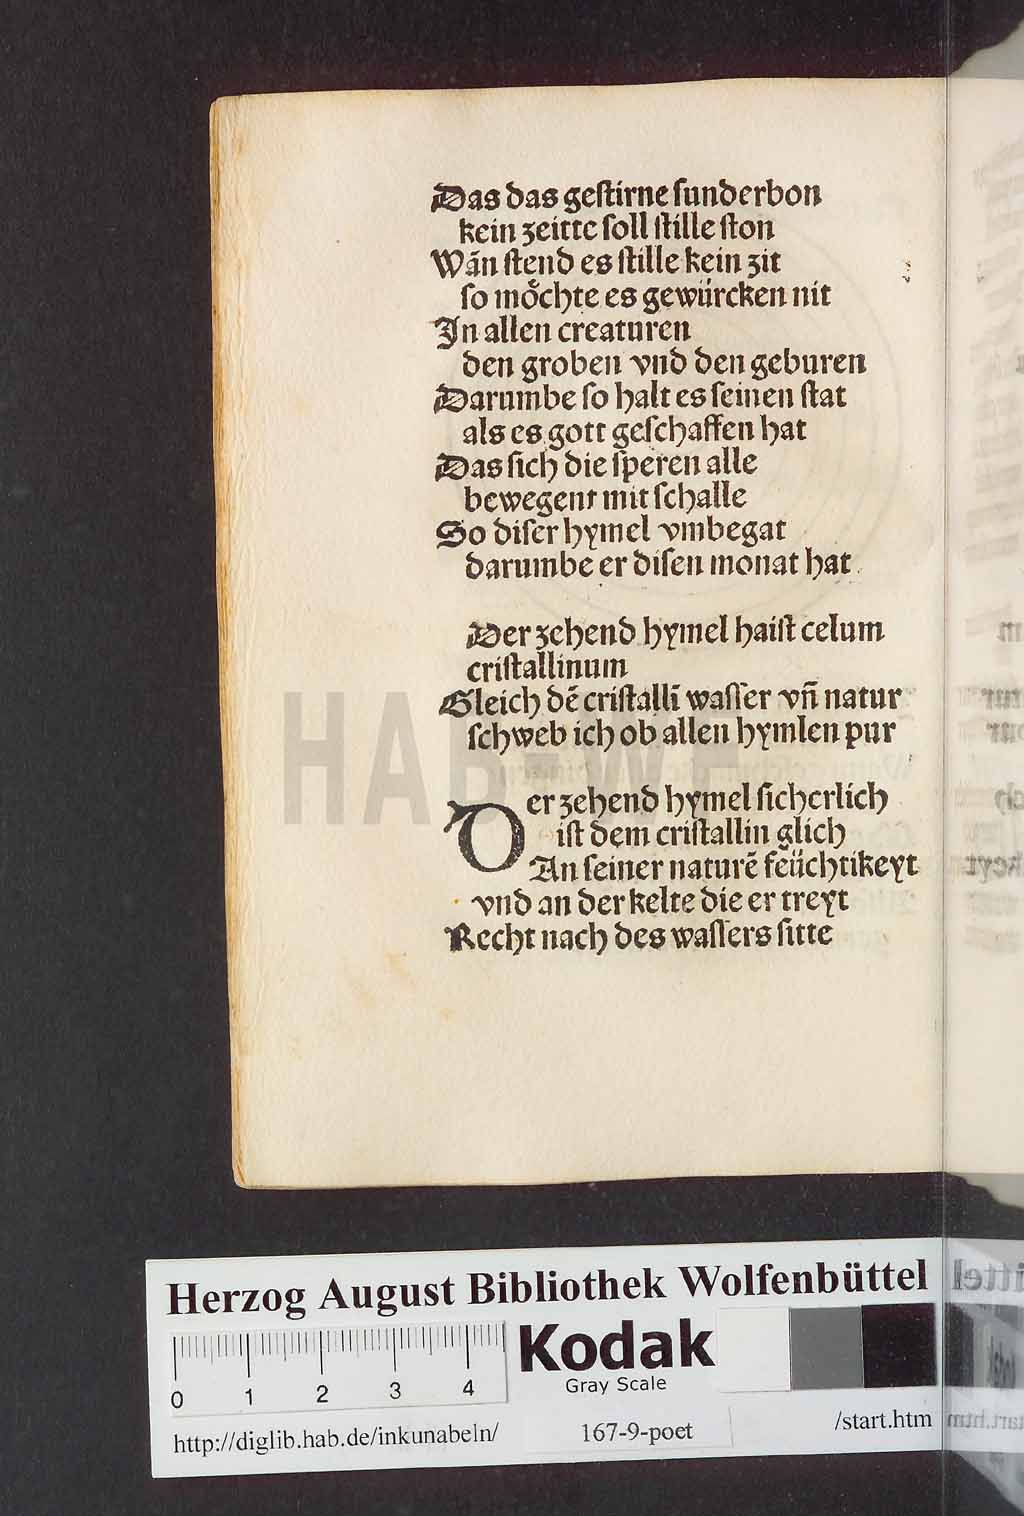 Das das gestirne sunderbon
kein zeitte soll stille ston
Wãn stend es stille kein zit
so moͤchte es gewürcken nit
In allen creaturen
den groben vnd den geburen
Darumbe so halt es seinen stat
als es gott geschaffen hat
Das sich die speren alle
bewegent mit schalle
So diser hymel vmbegat
darumbe er disen monat hat
Der zehend hymel haist celum
cristallinum
Gleich dẽ cristallĩ wasser vñ natur
schweb ich ob allen hymlen pur
Der zehend hymel sicherlich
ist dem cristallin glich
An seiner naturẽ feüchtikeyt
vnd an der kelte die er treyt
Recht nach des wassers sitte
HAB-WF
Herzog August Bibliothek Wolfenbüttel
0 1 2 3 4
Kodak
Gray Scale
http://diglib.hab.de/inkunabeln/ 167-9-poet /start.htm